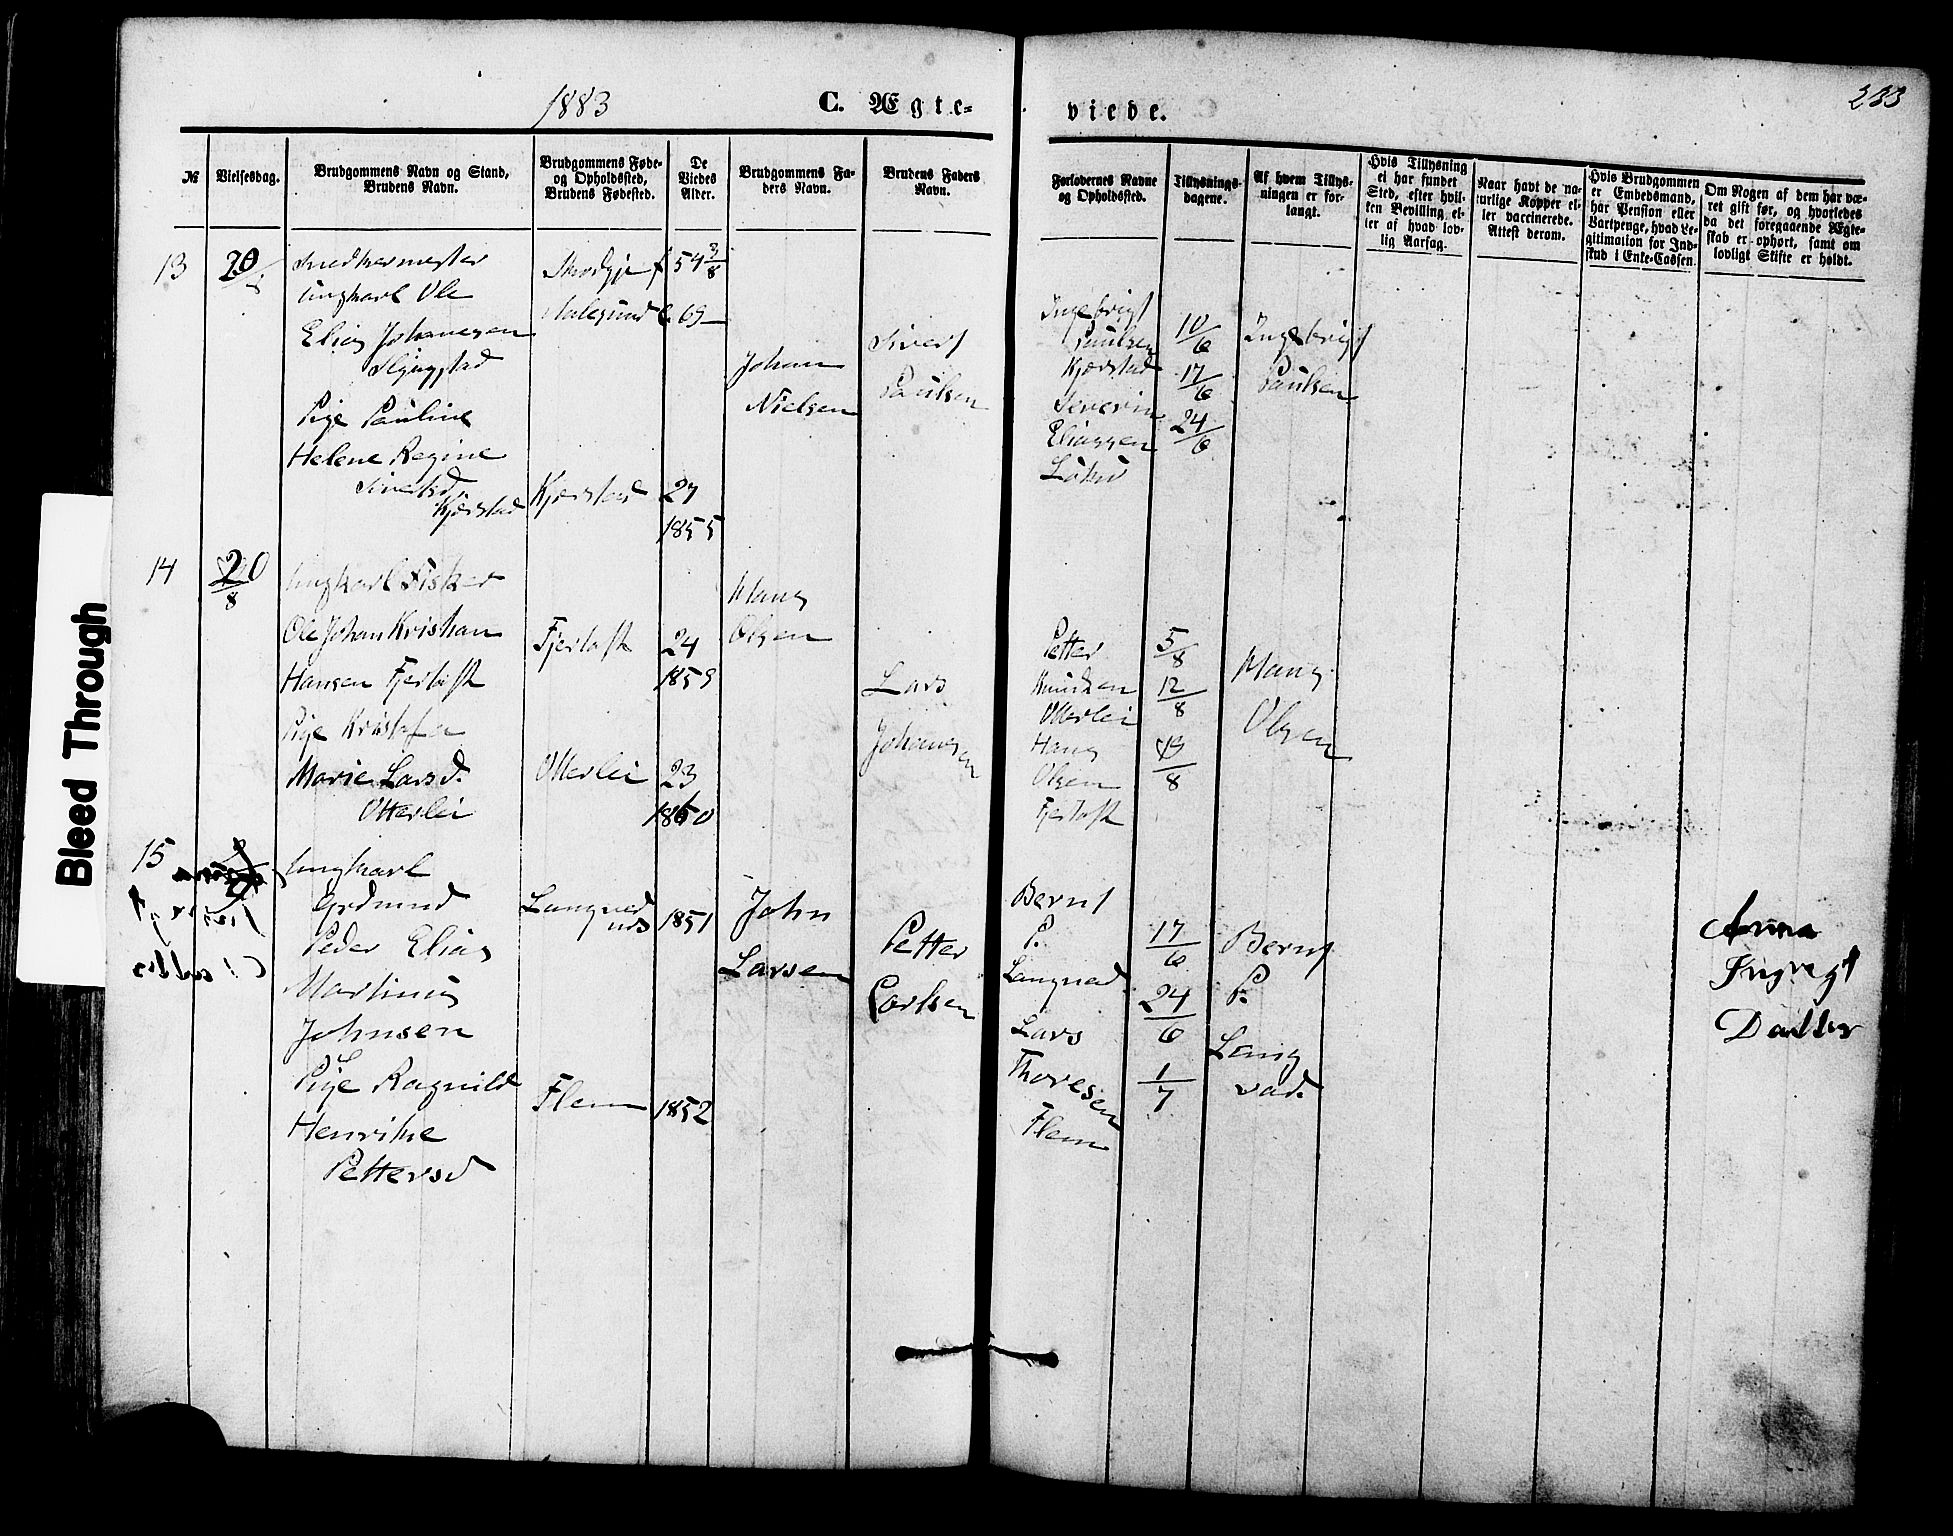 1883
C. Ægte-
viede.
233
№
Vielsesdag.
Brudgommens Navn og Stand,
Brudens Navn.
Brudgommens Føde-
og Opholdssted,
Brudens Fødested.
De
Viedes
Alder.
Brudgommens Fa-
ders Navn.
Brudens Faders
Navn.
Forlovernes Navne
og Opholdssted.
Tillysnings-
dagene.
Af hvem Tillys-
ningen er for-
langt.
Hvis Tillysning
ei har fundet
Sted, efter hvil-
ken Bevilling el-
ler af hvad lov-
lig Aarsag.
Naar havt de na-
turlige Kopper el-
ler vaccinerede.
Attest derom.
Hvis Brudgommen
er Embedsmand,
har Pension eller
Vartpenge, hvad Le-
gitimation for Ind-
skud i Enke-Cassen.
Om Nogen af dem har væ-
ret gift før, og hvorledes
da det foregaaende Ægte-
skab er ophørt, samt om
lovligt Skifte er holdt.
13
20
Snedkermester
Ungkarl Ole
Elias Johannesen
Pige Pauline
Helene Regine
Kjærstad
Skodje f 54 3/8
Aalesund
Kjærstad
27
1855
Johan
Nielsen
Sivert
Paulsen
Ingebrigt
Paulsen
Kjærstad
Severin
Eliassen
10/6
17/6
24/6
Ingebrigt
Paulsen
14
20/8
Ungkarl Fisker
Ole Johan Kristian
Hansen Fjertoft
Pige Kristofa
Marie Larsd.
Otterlei
Fjertoft
24
1859
Otterlei
23
1860
Hans
Olsen
Lars
Johansen
Petter
Knudsen
Otterlei
Hans
Olsen
Fjertoft
5/8
12/8
/8
Hans
Olsen
15
Ungkarl
Peder Elias
Martinus
Johnsen
Pige Ragnild
Henrikke
Pettersd
1851
Flem
1852
John
Larsen
Petter
Carlsen
Bernt
P.
Langvad
Lars
Thoresen
Flem
17/6
24/6
1/7
Bernt
P.
Lang
vad.
Anna
Bleed Through